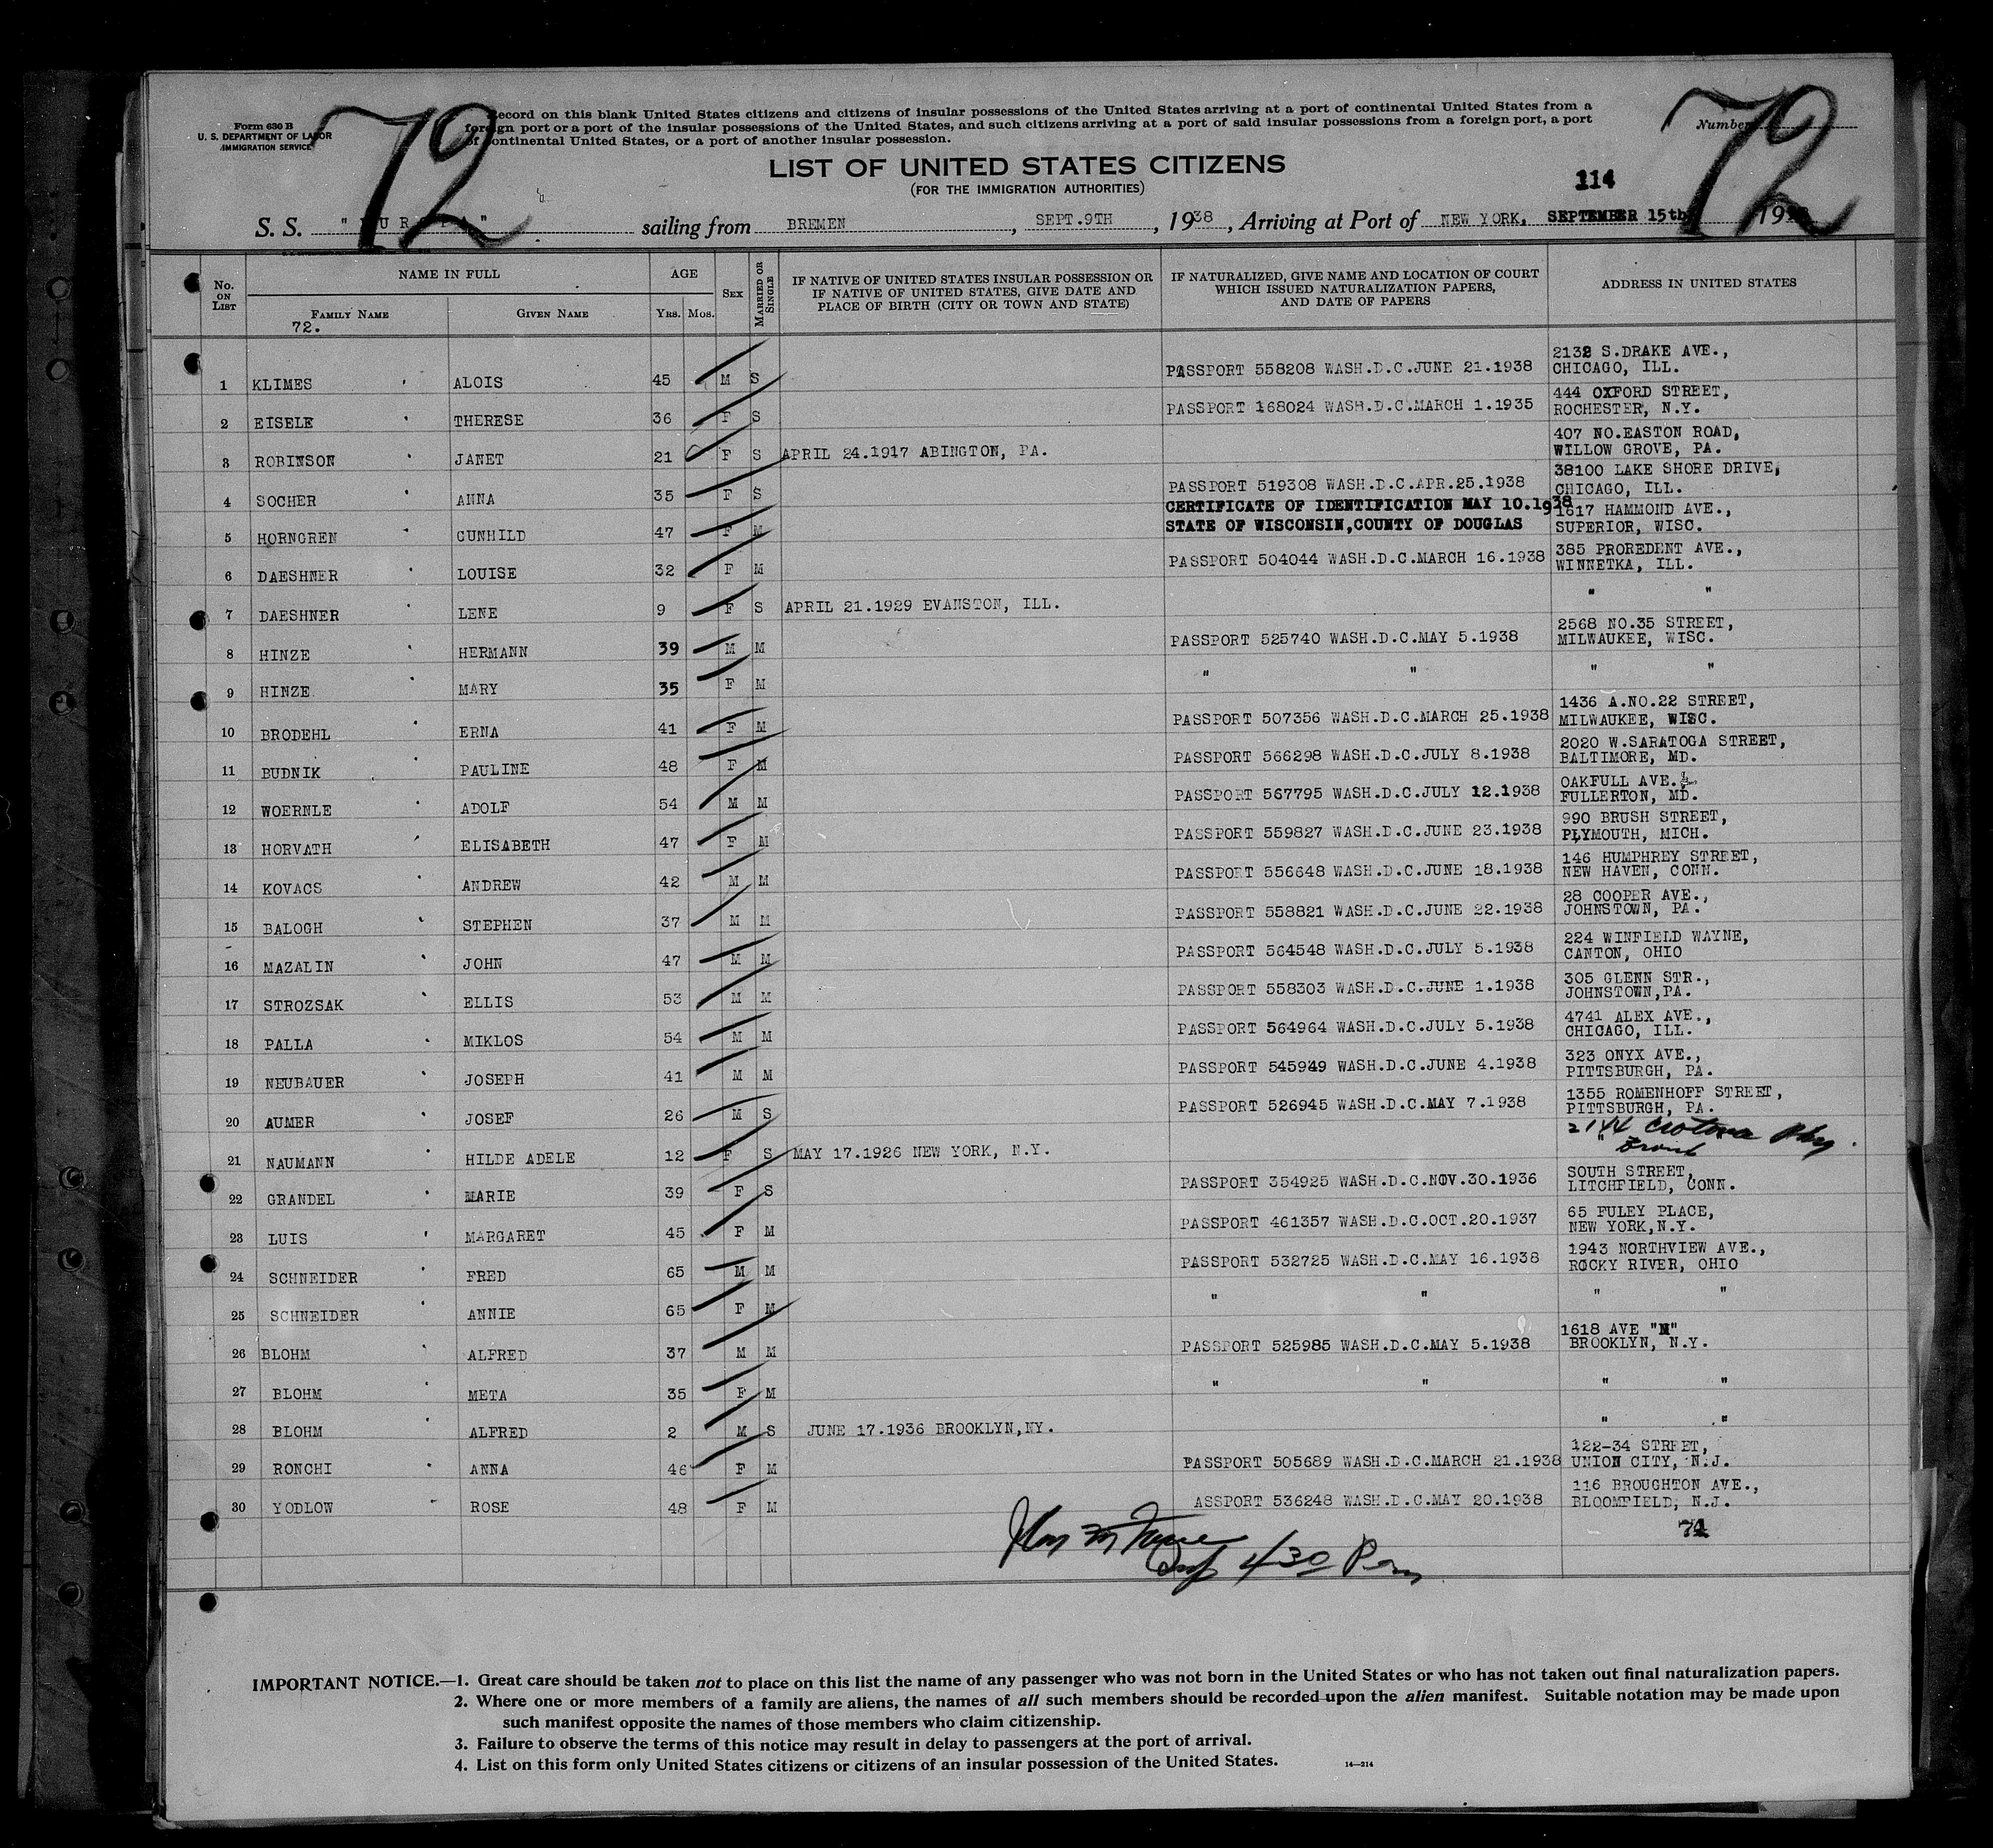 72
72
Form 630 B
U. S. DEPARTMENT OF LABOR
IMMIGRATION SERVICE
Record on this blank United States citizens and citizens of insular possessions of the United States arriving at a port of continental United States from a
foreign port or a port of the insular possessions of the United States, and such citizens arriving at a port of said insular possessions from a foreign port, a port
of continental United States, or a port of another insular possession.
Number
LIST OF UNITED STATES CITIZENS
(FOR THE IMMIGRATION AUTHORITIES)
114
S. S. "EUROPA" sailing from BREMEN, SEPT.9TH, 1938, Arriving at Port of NEW YORK, SEPTEMBER 15th 1938
No. ON LIST
NAME IN FULL
FAMILY NAME
72.
GIVEN NAME
AGE
YRS.
MOS.
SEX
MARRIED OR SINGLE
IF NATIVE OF UNITED STATES INSULAR POSSESSION OR
IF NATIVE OF UNITED STATES, GIVE DATE AND
PLACE OF BIRTH (CITY OR TOWN AND STATE)
IF NATURALIZED, GIVE NAME AND LOCATION OF COURT
WHICH ISSUED NATURALIZATION PAPERS,
AND DATE OF PAPERS
ADDRESS IN UNITED STATES
1 KLIMES ALOIS 45 M S PASSPORT 558208 WASH.D.C.JUNE 21.1938 2132 S.DRAKE AVE.,
CHICAGO, ILL.
2 EISELE THERESE 36 F S PASSPORT 168024 WASH.D.C.MARCH 1.1935 444 OXFORD STREET,
ROCHESTER, N.Y.
3 ROBINSON JANET 21 F S APRIL 24.1917 ABINGTON, PA. 407 NO.EASTON ROAD,
WILLOW GROVE, PA.
4 SOCHER ANNA 35 F S PASSPORT 519308 WASH.D.C.APR.25.1938 38100 LAKE SHORE DRIVE,
CHICAGO, ILL.
5 HORNGREN GUNHILD 47 F M CERTIFICATE OF IDENTIFICATION MAY 10.1938 1617 HAMMOND AVE.,
STATE OF WISCONSIN,COUNTY OF DOUGLAS SUPERIOR, WISC.
6 DAESHNER LOUISE 32 F M PASSPORT 504044 WASH.D.C.MARCH 16.1938 385 PROREDENT AVE.,
WINNETKA, ILL.
7 DAESHNER LENE 9 F S APRIL 21.1929 EVANSTON, ILL. " "
8 HINZE HERMANN 39 M M PASSPORT 525740 WASH.D.C.MAY 5.1938 2568 NO.35 STREET,
MILWAUKEE, WISC.
9 HINZE MARY 35 F M " " " "
10 BRODEHL ERNA 41 F M PASSPORT 507356 WASH.D.C.MARCH 25.1938 1436 A.NO.22 STREET,
MILWAUKEE, WISC.
11 BUDNIK PAULINE 48 F M PASSPORT 566298 WASH.D.C.JULY 8.1938 2020 W.SARATOGA STREET,
BALTIMORE, MD.
12 WOERNLE ADOLF 54 M M PASSPORT 567795 WASH.D.C.JULY 12.1938 OAKFULL AVE.,
FULLERTON, MD.
13 HORVATH ELISABETH 47 F M PASSPORT 559827 WASH.D.C.JUNE 23.1938 990 BRUSH STREET,
PLYMOUTH, MICH.
14 KOVACS ANDREW 42 M M PASSPORT 556648 WASH.D.C.JUNE 18.1938 146 HUMPHREY STREET,
NEW HAVEN, CONN.
15 BALOGH STEPHEN 37 M M PASSPORT 558821 WASH.D.C.JUNE 22.1938 28 COOPER AVE.,
JOHNSTOWN, PA.
16 MAZALIN JOHN 47 M M PASSPORT 564548 WASH.D.C.JULY 5.1938 224 WINFIELD WAYNE,
CANTON, OHIO
17 STROZSAK ELLIS 53 M M PASSPORT 558303 WASH.D.C.JUNE 1.1938 305 GLENN STR.,
JOHNSTOWN,PA.
18 PALLA MIKLOS 54 M M PASSPORT 564964 WASH.D.C.JULY 5.1938 4741 ALEX AVE.,
CHICAGO, ILL.
19 NEUBAUER JOSEPH 41 M M PASSPORT 545949 WASH.D.C.JUNE 4.1938 323 ONYX AVE.,
PITTSBURGH, PA.
20 AUMER JOSEF 26 M S PASSPORT 526945 WASH.D.C.MAY 7.1938 1355 ROMENHOFF STREET,
PITTSBURGH, PA.
21 NAUMANN HILDE ADELE 12 F S MAY 17.1926 NEW YORK, N.Y. 2144 Crotona Pkwy.
" Bronx
22 GRANDEL MARIE 39 F S PASSPORT 354925 WASH.D.C.NOV.30.1936 SOUTH STREET,
LITCHFIELD, CONN.
23 LUIS MARGARET 45 F M PASSPORT 461357 WASH.D.C.OCT.20.1937 65 FULEY PLACE,
NEW YORK,N.Y.
24 SCHNEIDER FRED 65 M M PASSPORT 532725 WASH.D.C.MAY 16.1938 1943 NORTHVIEW AVE.,
ROCKY RIVER, OHIO
25 SCHNEIDER ANNIE 65 F M " " " "
26 BLOHM ALFRED 37 M M PASSPORT 525985 WASH.D.C.MAY 5.1938 1618 AVE "N"
BROOKLYN, N.Y.
27 BLOHM META 35 F M " " " "
28 BLOHM ALFRED 2 M S JUNE 17.1936 BROOKLYN,NY. " "
29 RONCHI ANNA 46 F M PASSPORT 505689 WASH.D.C.MARCH 21.1938 122-34 STREET,
UNION CITY, N.J.
30 YODLOW ROSE 48 F M ASSPORT 536248 WASH.D.C.MAY 20.1938 116 BROUGHTON AVE.,
BLOOMFIELD, N.J.
Insp 4 30 Pm
IMPORTANT NOTICE.—1. Great care should be taken not to place on this list the name of any passenger who was not born in the United States or who has not taken out final naturalization papers.
2. Where one or more members of a family are aliens, the names of all such members should be recorded upon the alien manifest. Suitable notation may be made upon
such manifest opposite the names of those members who claim citizenship.
3. Failure to observe the terms of this notice may result in delay to passengers at the port of arrival.
4. List on this form only United States citizens or citizens of an insular possession of the United States.
14—214